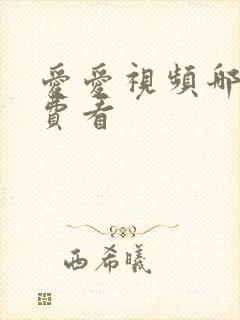 愛愛視頻哪
費看
西希曦